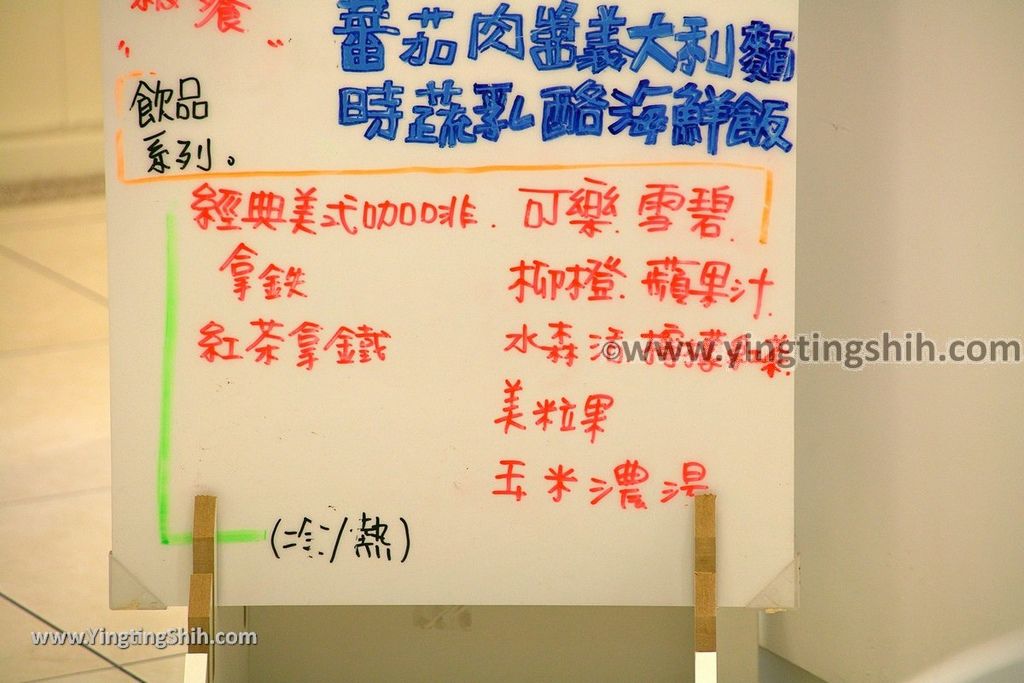 餐
蕃茄肉醬義大利麵
時蔬乳酪海鮮飯
飲品
系列。
經典美式咖啡. 可樂. 雪碧.
拿鉄 柳橙. 蘋果汁.
紅茶拿鐵 水森活
©www.yingtingshih.com
美粒果
玉米濃湯
(冷/熱)
www.YingtingShih.com